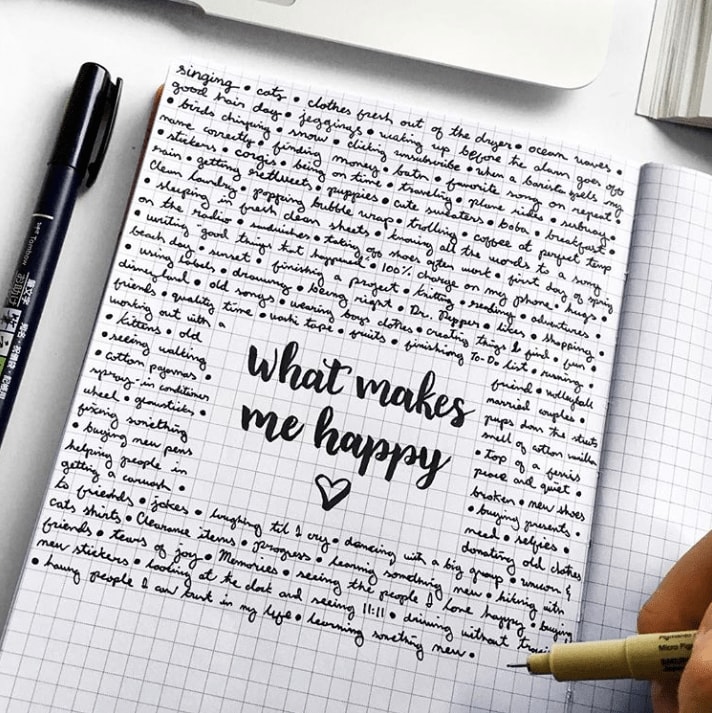 singing • cats • clothes fresh out of the dryer • ocean waves •
good hair day • jeggings • waking up before the alarm goes off
• birds chirping • snow • clicking unsubscribe • when a barista spells my
name correctly • finding money • baths • favorite song on repeat
• stickers • corgis • being on time • traveling • plane rides • subway •
rain • getting retweets • puppies • cute sweaters • boba • breakfast •
clean laundry • popping bubble wrap • trolling • coffee at perfect temp
• sleeping in fresh clean sheets • knowing all the words to a song
on the radio • sandwiches • taking off shoes after work • first day of spring
• writing good things that happened • 100% charge on my phone • hugs •
beach day • sunset • finishing a project • knitting • reading • adventures •
• using labels • drawing • being right • Dr. Pepper • likes • shopping •
disneyland • old songs • wearing boys clothes • creating things I find • fun •
friends • quality time • washi tape • fruits • finishing To-Do list • running •
working out with a friend • volleyball
• kittens • old married couples •
• seeing walking pups down the streets
• cotton pajamas • smell of cotton vanilla
spray-in conditioner • top of a ferris
wheel • glowsticks • peace and quiet •
fixing something broken • new shoes
• buying new pens • buying presents •
helping people in need • selfies •
getting a carwash donating old clothes
what makes
me happy
to friends • jokes • laughing til I cry • dancing with a big group • unicorn &
cats shirts • Clearance items • progress • learning something new • hiking with
friends • tears of joy • Memories • seeing the people I love happy • buying
new stickers • looking at the clock and seeing 11:11 • driving without traffic
• having people I can trust in my life • learning someting new •
Tombow